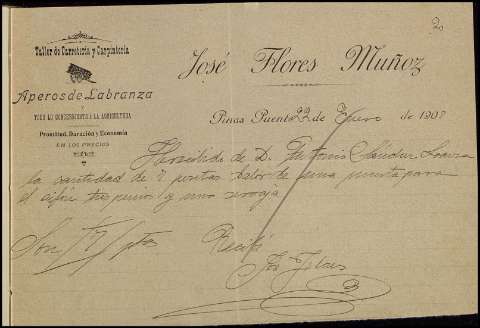 20
Taller de Carretería y Carpintería
José Flores Muñoz
Aperos de Labranza
Y
TODO LO CONCERNIENTE A LA AGRICULTURA
Prontitud, Duración y Economía
EN LOS PRECIOS
Pinos Puente 22 de Enero de 1908
He recibido de D. Antonio Sánchez
la cantidad de 7 pesetas valor de una puerta para
el y una
Son 7 ptas
Recibí
José Flores